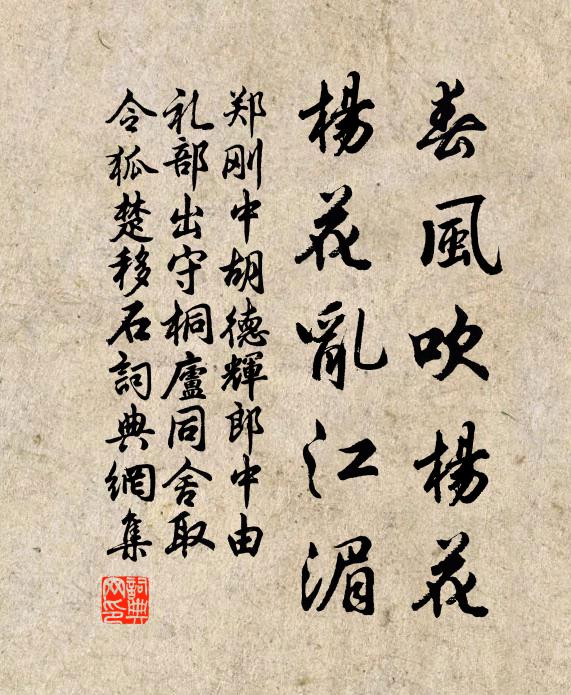 春風吹楊花
楊花亂江湄
郑刚中胡德輝郎中由
礼部出守桐廬同舍取
令狐楚移石詞典網集
詞典
网印